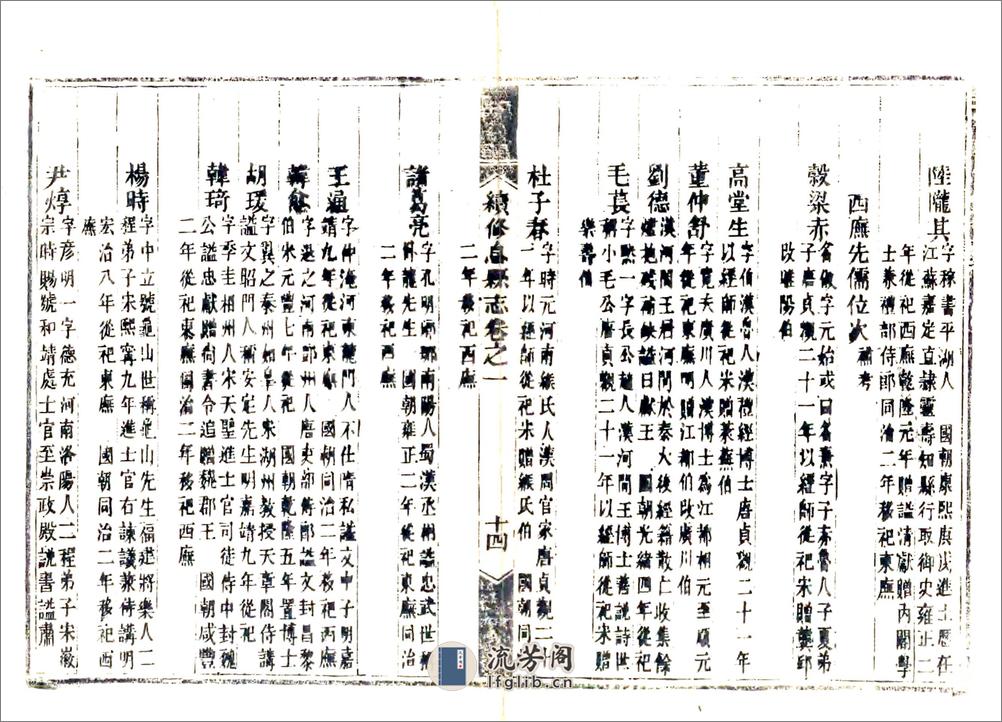 陸隴其字稼書平湖人 國朝康熙庚戌進士歷任
江蘇嘉定直隸靈壽知縣行取御史雍正二
年從祀西廡乾隆元年贈諡清獻贈內閣學
士兼禮部侍郎同治二年移祀東廡
西廡先儒位次補考
穀梁赤名俶字元始或曰名赤字子夏弟
子唐貞觀二十一年以經師從祀宋贈龔邱
改睢陽伯
高堂生字伯漢魯人漢禮經博士唐貞觀二十一年
以經師從祀宋贈萊蕪伯
董仲舒字寬夫廣川人漢博士為江都相元至順元
年從祀東廡明贈江都伯改廣川伯
劉德漢河間王居河間於秦火後經籍散亡收集餘
諡曰獻王 國朝光緒四年從祀
毛萇字一字長公趙人漢河間王博士善說詩世
稱小毛公唐貞觀二十一年以經師從祀宋贈
樂壽伯
杜子春字時元河南緱氏人漢周官家唐貞觀二十
一年以經師從祀宋贈緱氏伯 國朝同治
二年移祀西廡
續修息縣志卷之一
十四
諸葛亮字孔明瑯琊南陽人蜀漢丞相諡忠武世稱
臥龍先生 國朝雍正二年從祀東廡同治
二年移祀西廡
王通字仲淹河東龍門人不仕肯私諡文中子明嘉
靖九年從祀 國朝同治二年移祀西廡
韓愈字退之河南鄧州人唐吏部侍郎諡文封昌黎
伯宋元豐七年從祀 國朝乾隆五年置博士
胡瑗字翼之泰州如皋人宋湖州教授天章閣侍講
諡文昭門人稱安定先生明嘉靖九年從祀
韓琦字季圭相州人宋天聖進士官司徒侍中封魏
公諡忠獻贈尚書令追贈魏郡王 國朝咸豐
二年從祀東廡同治二年移祀西廡
楊時字中立號龜山世稱龜山先生福建將樂人二
程弟子宋熙寧九年進士官右諫議兼侍講明
宏治八年從祀東廡 國朝同治二年移祀西
廡
尹焞字彥明一字德充河南洛陽人二程弟子宋徽
宗時賜號和靖處士官至崇政殿說書諡肅
流芳閣
lfglib.cn